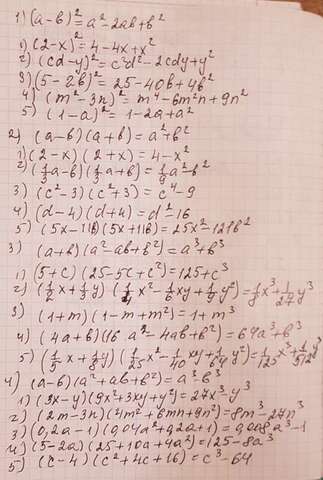 1) (a-b)² = a² - 2ab + b²
1) (2-x)² = 4 - 4x + x²
2) (cd-y)² = c²d² - 2cdy + y²
3) (5-2b)² = 25 - 40b + 4b²
4) (m²-3n)² = m⁴ - 6m²n + 9n²
5) (1-a)² = 1 - 2a + a²
2) (a-b)(a+b) = a² + b²
1) (2-x)(2+x) = 4 - x²
2) (1/3a-b)(1/3a+b) = 1/9a² - b²
3) (c²-3)(c²+3) = c⁴ - 9
4) (d-4)(d+4) = d² - 16
5) (5x-11b)(5x+11b) = 25x² - 121b²
3) (a+b)(a²-ab+b²) = a³ + b³
1) (5+c)(25-5c+c²) = 125 + c³
2) (1/2x+1/3y)(1/4x²-1/6xy+1/9y²) = 1/8x³ + 1/27y³
3) (1+m)(1-m+m²) = 1 + m³
4) (4a+b)(16a²-4ab+b²) = 64a³ + b³
5) (1/5x+1/8y)(1/25x²-1/40xy+1/64y²) = 1/125x³ + 1/512y³
4) (a-b)(a²+ab+b²) = a³ - b³
1) (3x-y)(9x²+3xy+y²) = 27x³ - y³
2) (2m-3n)(4m²+6mn+9n²) = 8m³ - 27n³
3) (0,2a-1)(0,04a²+0,2a+1) = 0,008a³ - 1
4) (5-2a)(25+10a+4a²) = 125 - 8a³
5) (c-4)(c²+4c+16) = c³ - 64